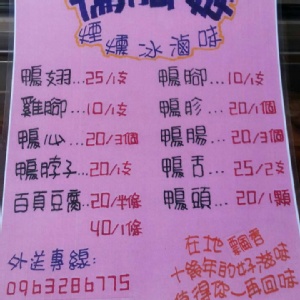 煙燻冰滷味
鴨翅...25/1支
鴨腳...10/1支
雞腳...10/1支
鴨胗...20/1個
鴨心...20/3個
鴨腸...20/3個
鴨脖子...20/1支
鴨舌...25/2支
百頁豆腐..20/半條
40/1條
鴨頭...20/1顆
外送專線:
0963286775
在地
十幾年的好滋味
值得您一再回味